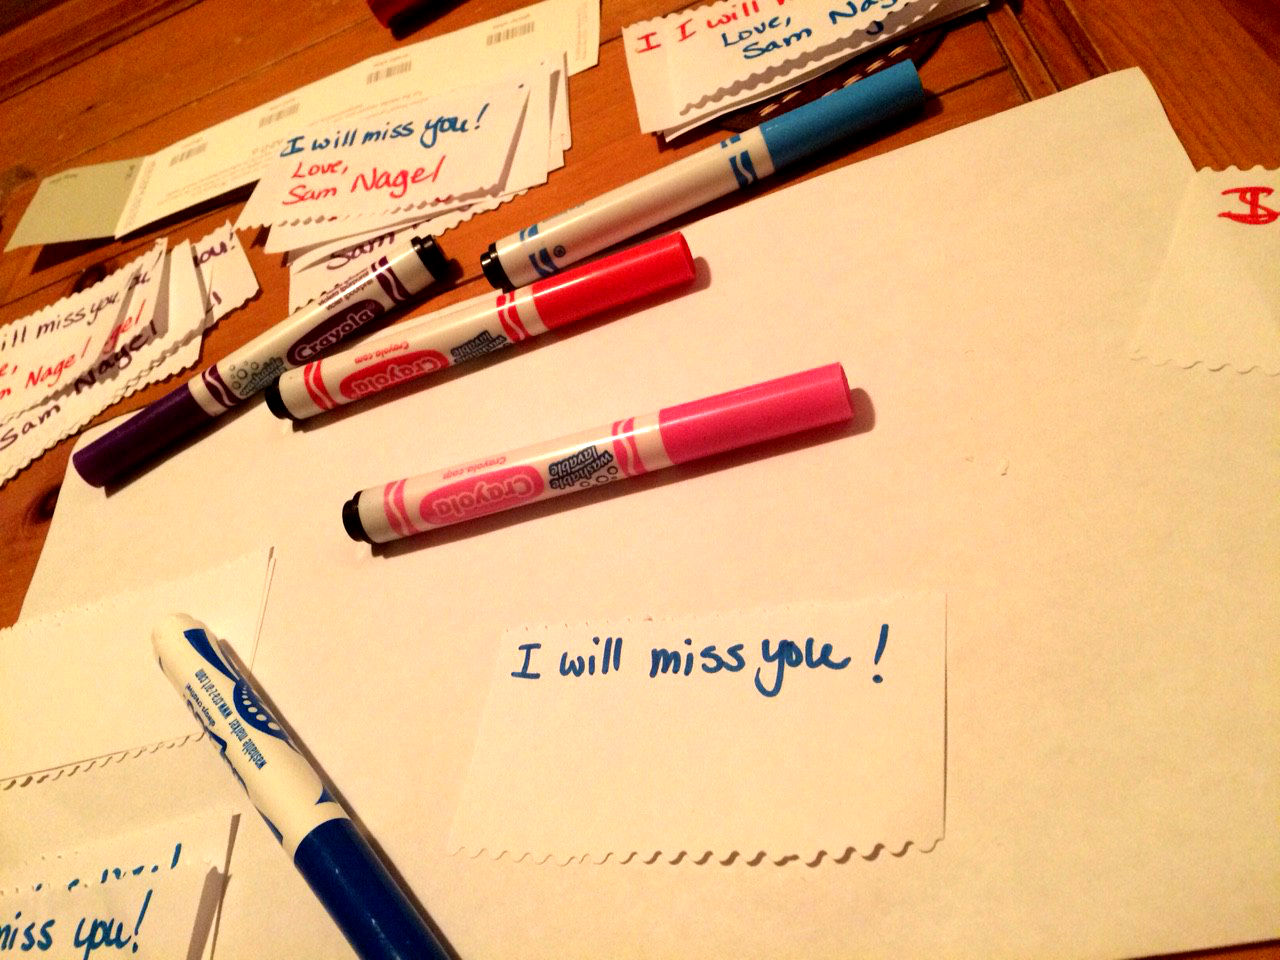 I I will
Love,
Sam Nag
I will miss you!
Love,
Sam Nagel
Sam
you!
ill miss you
Sam Nagel
Crayola
washable
lavable
Crayola.com
Crayola
washable
lavable
Crayola.com
Crayola
I will miss you!
washable marker www.cra-z-art.com
miss you!